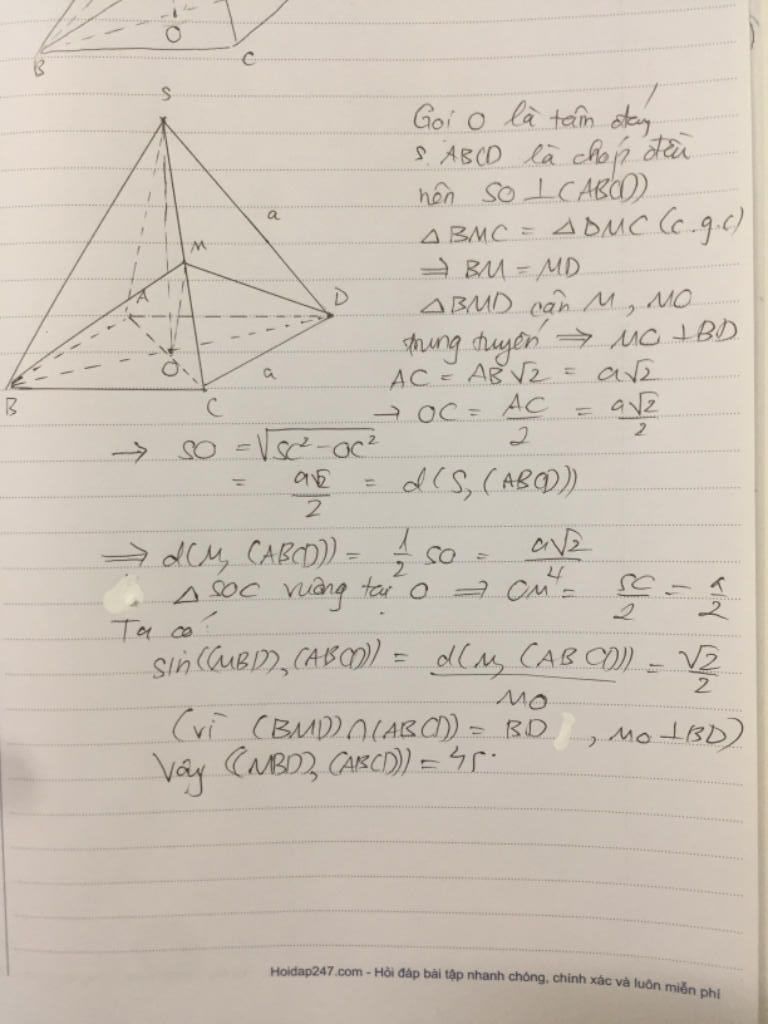 O
B
C
S
a
M
A
D
O
a
B
C
Gọi O là tâm đáy
S.ABCD là chóp đều
nên SO ⊥ (ABCD)
△BMC = △DMC (c.g.c)
⇒ BM = MD
△BMD cân M, MO
trung tuyến ⇒ MO ⊥ BD
AC = AB√2 = a√2
→ OC = AC/2 = a√2/2
→ SO = √(SC² - OC²)
= a√2/2 = d(S, (ABCD))
⇒ d(M, (ABCD)) = 1/2 SO = a√2/4
△SOC vuông tại O ⇒ OM = SC/2 = a/2
Ta có:
sin((MBD), (ABCD)) = d(M, (ABCD))/MO = √2/2
(vì (BMD) ∩ (ABCD) = BD, MO ⊥ BD)
Vậy ((MBD), (ABCD)) = 45°
Hoidap247.com - Hỏi đáp bài tập nhanh chóng, chính xác và luôn miễn phí